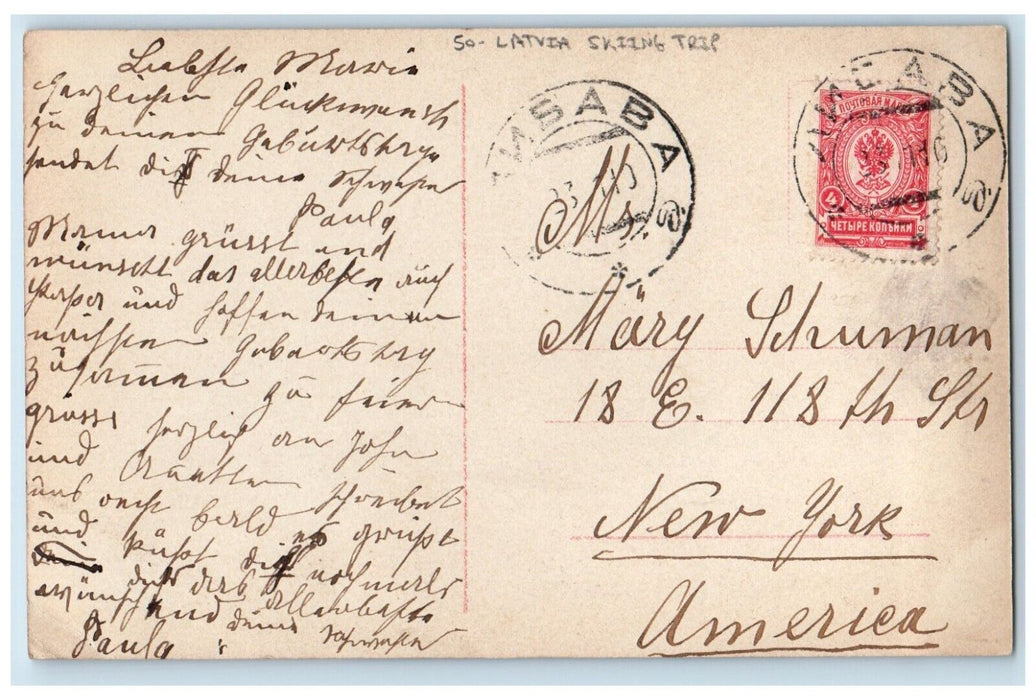 50- LATVIA SKIING TRIP
Liebste Marie
herzlichen Glückwunsch
zu deinem Geburtstage
sendet dir deine Schwester
Paula
Mama grüsst und
wünscht das allerbeste auch
Papa und hoffen deinen
nächsten Geburtstag
zusammen zu feiern
grüsse herzlich an John
und Tanten schreibet
uns recht bald es grüsst
und küsst dich nochmals
dir das allerbeste
wünschend deine Schwester
Paula
ЛИБАВА
ЛИБАВА
ПОЧТОВАЯ МАРКА
4
ЧЕТЫРЕ КОПѢЙКИ
Ms
Märy Schuman
18 E. 118 th Str
New York
America